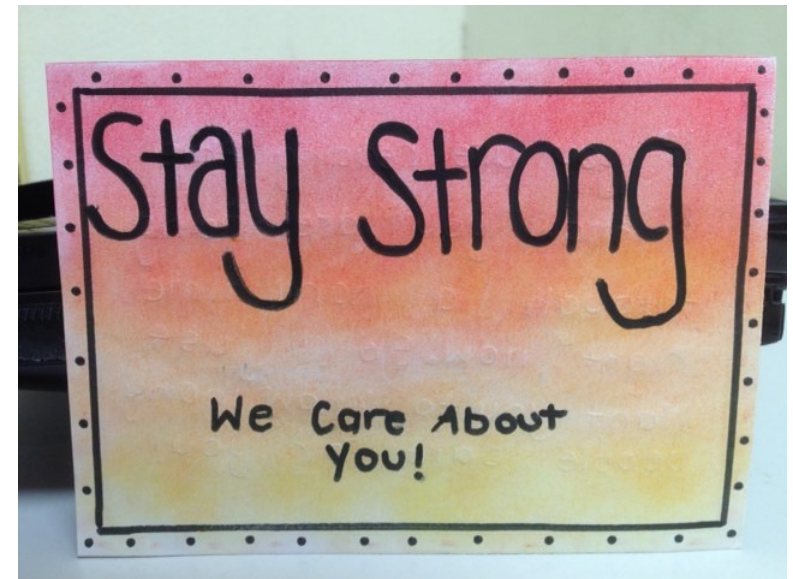 Stay Strong
We Care About
You!